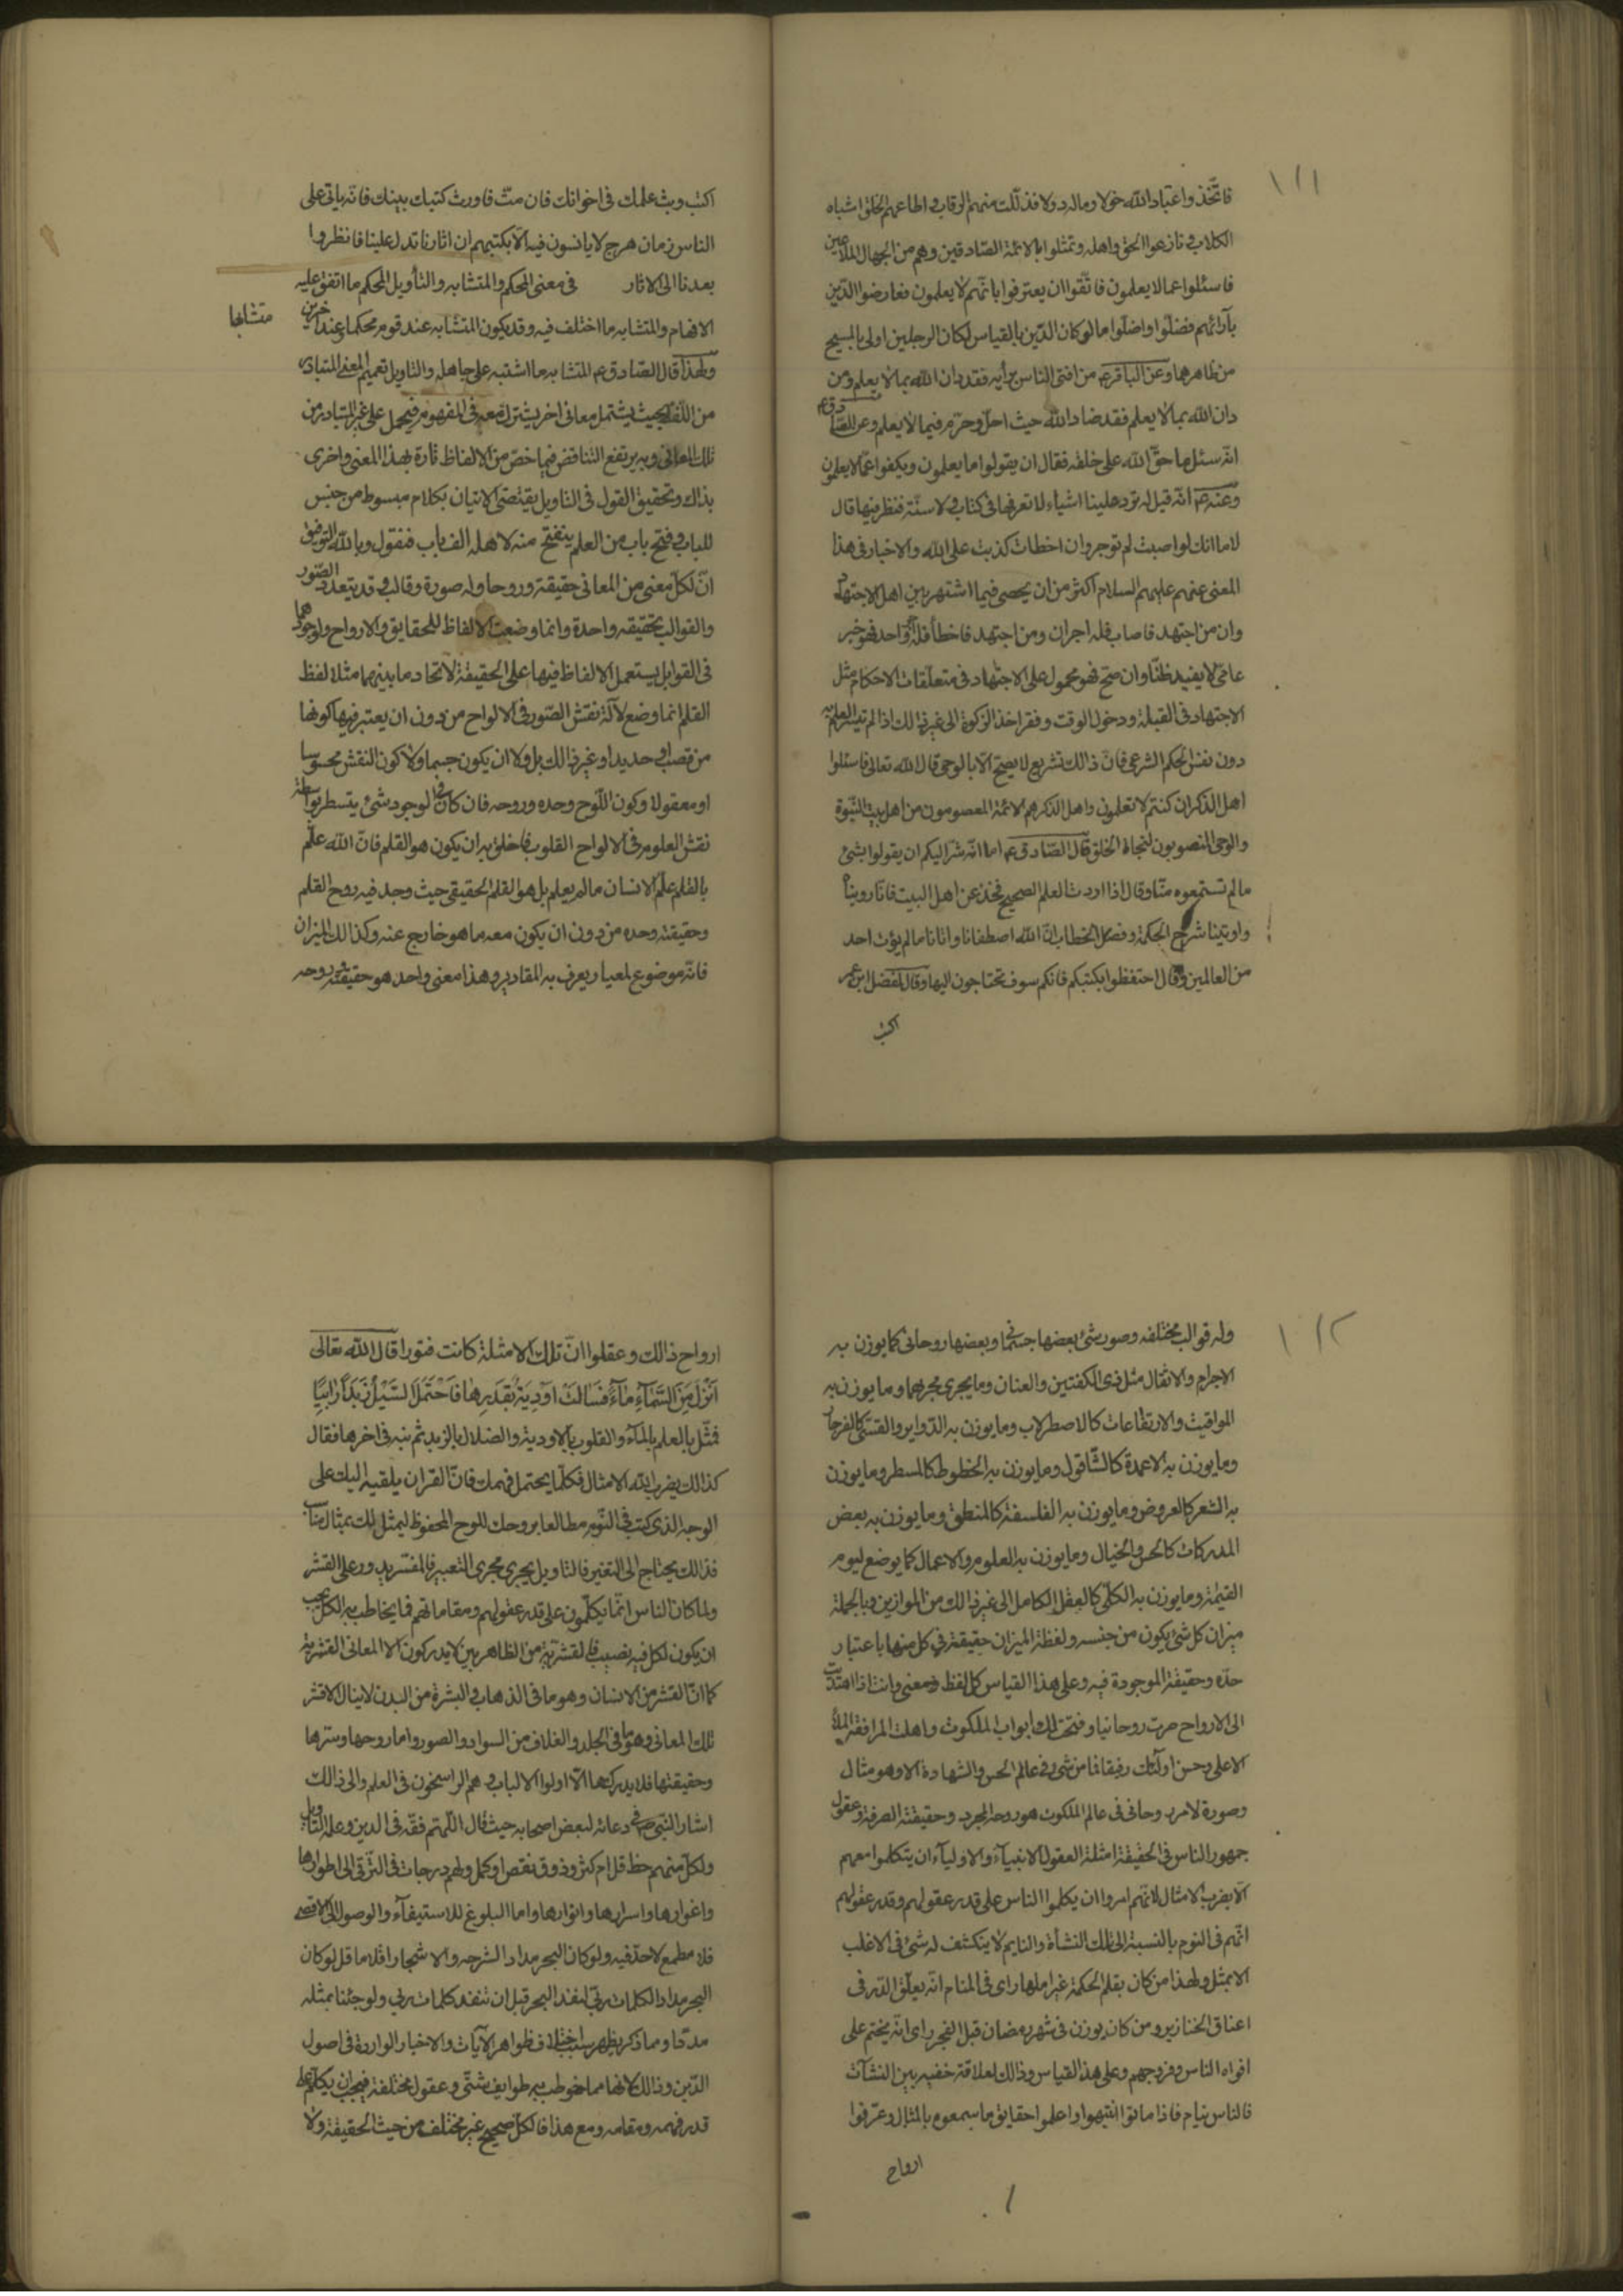 ١١١
فاتّخذوا عباد الله خولا وماله دولا فذلّلت منهم الرقاب واطاعهم الخلق اشباه
الكلاب ونازعوا الحق واهله وتمثلوا بالائمة الصّادقين وهم من الجهال الملاعين
فاسئلوا عما لا يعلمون فانّقوا ان يعترفوا بانّهم لا يعلمون فعارضوا الدّين
بآرائهم فضلّوا واضلّوا ما لو كان الدّين بالقياس لكان الرجلين اولى بالمسح
من ظاهرهما وعن الباقر ع من افتى الناس برأيه فقد دان الله بما لا يعلم ومن
دان الله بما لا يعلم فقد ضاد الله حيث احلّ وحرّم فيما لا يعلم وعن الصّادق ع
انّه سئل ما حقّ الله على خلقه فقال ان يقولوا ما يعلمون ويكفوا عمّا لا يعلمون
وعنه ع انّه قيل له ترد علينا اشياء لا نعرفها فى كتاب ولا سنّة فننظر فيها قال
لا اما انك لو اصبت لم توجر وان اخطات كذبت على الله والاخبار فى هذا
المعنى عنهم عليهم السلام اكثر من ان يحصى فيما اشتهر بين اهل الاجتهاد
وان من اجتهد فاصاب فله اجران ومن اجتهد فاخطأ فله اجر واحد فهو خبر
عامّى لا يفيد ظنّا وان صحّ فهو محمول على الاجتهاد فى متعلّقات الاحكام مثل
الاجتهاد فى القبلة ودخول الوقت وفقر اخذ الزكوة الى غير ذالك اذا لم تيسر العلم به
دون نفس الحكم الشرعى فانّ ذالك تشريع لا يصحّ الّا بالوحى قال الله تعالى فاسئلوا
اهل الذكر ان كنتم لا تعلمون واهل الذكر هم الائمة المعصومون من اهل بيت النبّوة
والوحى المنصوبون لنجاة الخلق قال الصّادق ع اما انّه شر اليكم ان يقولوا بشئ
ما لم تستمعوه منّا وقال اذا اردت العلم الصحيح فخذ عن اهل البيت فانّا روينا
واوتينا شرح الحكمة وفصل الخطاب انّ الله اصطفانا واتانا ما لم يؤت احد
من العالمين وقال احتفظوا بكتبكم فانكم سوف تحتاجون اليها وقال لمفضل ابن عمر
اكتب
اكتب وبث علمك فى اخوانك فان متّ فاورث كتبك بنيك فانّه ياتى على
الناس زمان هرج لا يانسون فيه الّا بكتبهم ان اثارنا تدل علينا فانظروا
بعدنا الى الاثار فى معنى المحكم والمتشابه والتأويل المحكم ما اتفق عليه
الافهام والمتشابه ما اختلف فيه وقد يكون المتشابه عند قوم محكما وعند اخرين
متشابها
ولهذا قال الصّادق ع المتشابه ما اشتبه على جاهله والتاويل تعميم المعنى المتبادر
من اللّفظ بحيث يشتمل معانى اخر يشترك معه فى المفهوم فيحمل على غير المتبادر من
تلك المعانى وبه يرتفع التناقض فيما خصّ من الالفاظ تارة بهذا المعنى واخرى
بذاك وتحقيق القول فى التاويل يقتضى الاتيان بكلام مبسوط من جنس
اللباب وفتح باب من العلم ينفتح منه لاهله الف باب فنقول وبالله التوفيق
انّ لكلّ معنى من المعانى حقيقة وروحا وله صورة وقالب وقد يتعدد الصّور
والقوالب بحقيقه واحدة وانما وضعت الالفاظ للحقايق والارواح ولوجودهما
فى القوابل يستعمل الالفاظ فيها على الحقيقة لاتحاد ما بينهما مثلا لفظ
القلم انما وضع لآلة نقش الصّور فى الالواح من دون ان يعتبر فيها كونها
من قصب او حديد او غير ذالك بل ولا ان يكون جسما ولا كون النقش محسوسا
او معقولا وكون اللّوح وحده وروحه فان كان فى الوجود شئ يتسطر بواسطته
نقش العلوم فى الالواح القلوب فاخلق به ان يكون هو القلم فانّ الله علّم
بالقلم علّم الانسان ما لم يعلم بل هو القلم الحقيقى حيث وجد فيه روح القلم
وحقيقته وحده من دون ان يكون معه ما هو خارج عنه وكذالك الميزان
فانّه موضوع لمعيار يعرف به المقادير وهذا معنى واحد هو حقيقته وروحه
١١٢
وله قوالب مختلفه وصور شئ بعضها جسمانى وبعضها روحانى كما يوزن به
الاجرام والاثقال مثل ذى الكفتين والعنان وما يجرى مجراهما وما يوزن به
المواقيت والارتفاعات كالاصطرلاب وما يوزن به الدّواير والقسّى كالفرجار
وما يوزن به الاعمدة كالشّاقول وما يوزن به الخطوط كالمسطر وما يوزن
به الشعر كالعروض وما يوزن به الفلسفة كالمنطق وما يوزن به بعض
المدركات كالحس والخيال وما يوزن به العلوم والاعمال كما يوضع ليوم
القيٰمة وما يوزن به الكلّى كالعقل الكامل الى غير ذالك من الموازين وبالجملة
ميزان كل شئ يكون من جنسه ولفظة الميزان حقيقة فى كل منها باعتبار
حدّه وحقيقته الموجودة فيه وعلى هذا القياس كل لفظ ومعنى وانت اذا اهتديت
الى الارواح صرت روحانيا وفتحت لك ابواب الملكوت واهلت لمرافقة الملأ
الاعلى وحسن اولئك رفيقا فما من شئ فى عالم الحس والشهادة الا وهو مثال
وصورة لامر روحانى فى عالم الملكوت هو روحه المجرد وحقيقته الصرفة وعقول
جمهور الناس فى الحقيقة امثلة العقول الانبيآء والاوليآء ان يتكلموا معهم
الّا بضرب الامثال لانّهم امروا ان يكلموا الناس على قدر عقولهم وقدر عقولهم
انّهم فى النوم بالنسبة الى تلك النشأة والنايم لا ينكشف له شئ فى الاغلب
الا بمثل ولهذا من كان يقلم الحكمة غير املها راى فى المنام انّه يعلّق الدّر فى
اعناق الخنازير ومن كان يوزن فى شهر رمضان قبل الفجر راى انّه يختم على
افواه الناس وفروجهم وعلى هذا القياس وذالك لعلاقة خفيه بين النشآت
فالناس نيام فاذا ماتوا انتبهوا واعلموا حقايق ما سمعوه بالمثال وعرّفوا
ارواح
ارواح ذالك وعقلوا انّ تلك الامثلة كانت قشورا قال الله تعالى
اَنْزَلَ مِنَ السَّمٰآءِ مٰآءً فَسٰالَتْ اَوْدِيَةٌ بِقَدَرِهٰا فَاحْتَمَلَ السَّيْلُ زَبَدًا رٰابِيًا
فمثّل بالعلم بالمآء والقلوب بالاودية والضلال بالزبد ثم نبه فى اخرها فقال
كذالك يضرب الله الامثال فكلّما يحتمل فهمك فانّ القران يلقيه اليك على
الوجه الذى كنت فى النّوم مطالعا بروحك للوح المحفوظ ليمثّل لك بمثال مناسب
فذالك يحتاج الى التعبير فالتاويل يجرى مجرى التعبير فالمفسّر يدور على القشر
ولما كان الناس انّما يكلّمون على قدر عقولهم ومقاماتهم فما يخاطب به الكل يجب
ان يكون لكل فيه نصيب فالقشريّة من الظاهريين لا يدركون الا المعانى القشرية
كما انّ القشر من الانسان وهو ما فى الذهاب والبشرة من البدن لا ينال الا قشر
تلك المعانى وهو ما فى الجلد والغلاف من السواد والصور واما روحها وسرّها
وحقيقتها فلا يدركها الّا اولوا الالباب وهم الراسخون فى العلم والى ذالك
اشار النبى ص فى دعائه لبعض اصحابه حيث قال اللّهم فقّه فى الدين وعلمه التاويل
ولكل منهم حظ قلّ ام كثر وذوق نقص او كمل ولهم درجات فى التّرقى الى اطوارها
واغوارها واسرارها وانوارها واما البلوغ للاستيفآء والوصول الى الاقصى
فلا مطمع لاحد فيه ولو كان البحر مدادا لشرحه والاشجار اقلاما قل لو كان
البحر مدادا لكلمات ربّى لنفد البحر قبل ان تنفد كلمات ربى ولو جئنا بمثله
مددا ومما ذكر يظهر سبب اختلاف ظواهر الآيات والاخبار الواردة فى اصول
الدّين وذالك لانها مما خوطب به طوايف شتّى وعقول مختلفة فيجب ان يكلّم على
قدر فهمه ومقامه ومع هذا فالكل صحيح غير مختلف من حيث الحقيقة ولا